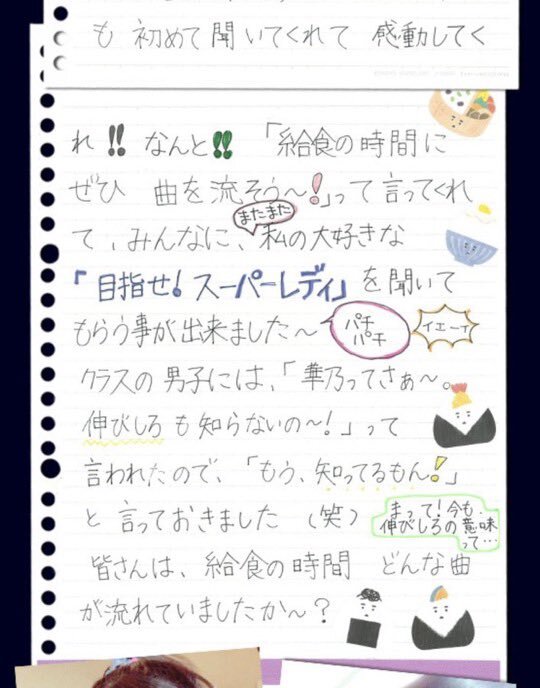 も 初めて聞いてくれて 感動してく
れ!! なんと!! 「給食の時間に
ぜひ 曲を流そう〜!」って言ってくれ
またまた
て、みんなに、私の大好きな
「目指せ!スーパーレディ」を聞いて
もらう事が出来ました〜
パチ
パチ
イエーイ
クラスの男子には、「華乃ってさぁ〜。
伸びしろも知らないの〜!」って
言われたので、「もう、知ってるもん!」
と言っておきました (笑)
まって!今も、
伸びしろの意味
って…
皆さんは、給食の時間 どんな曲
が流れていましたか〜?